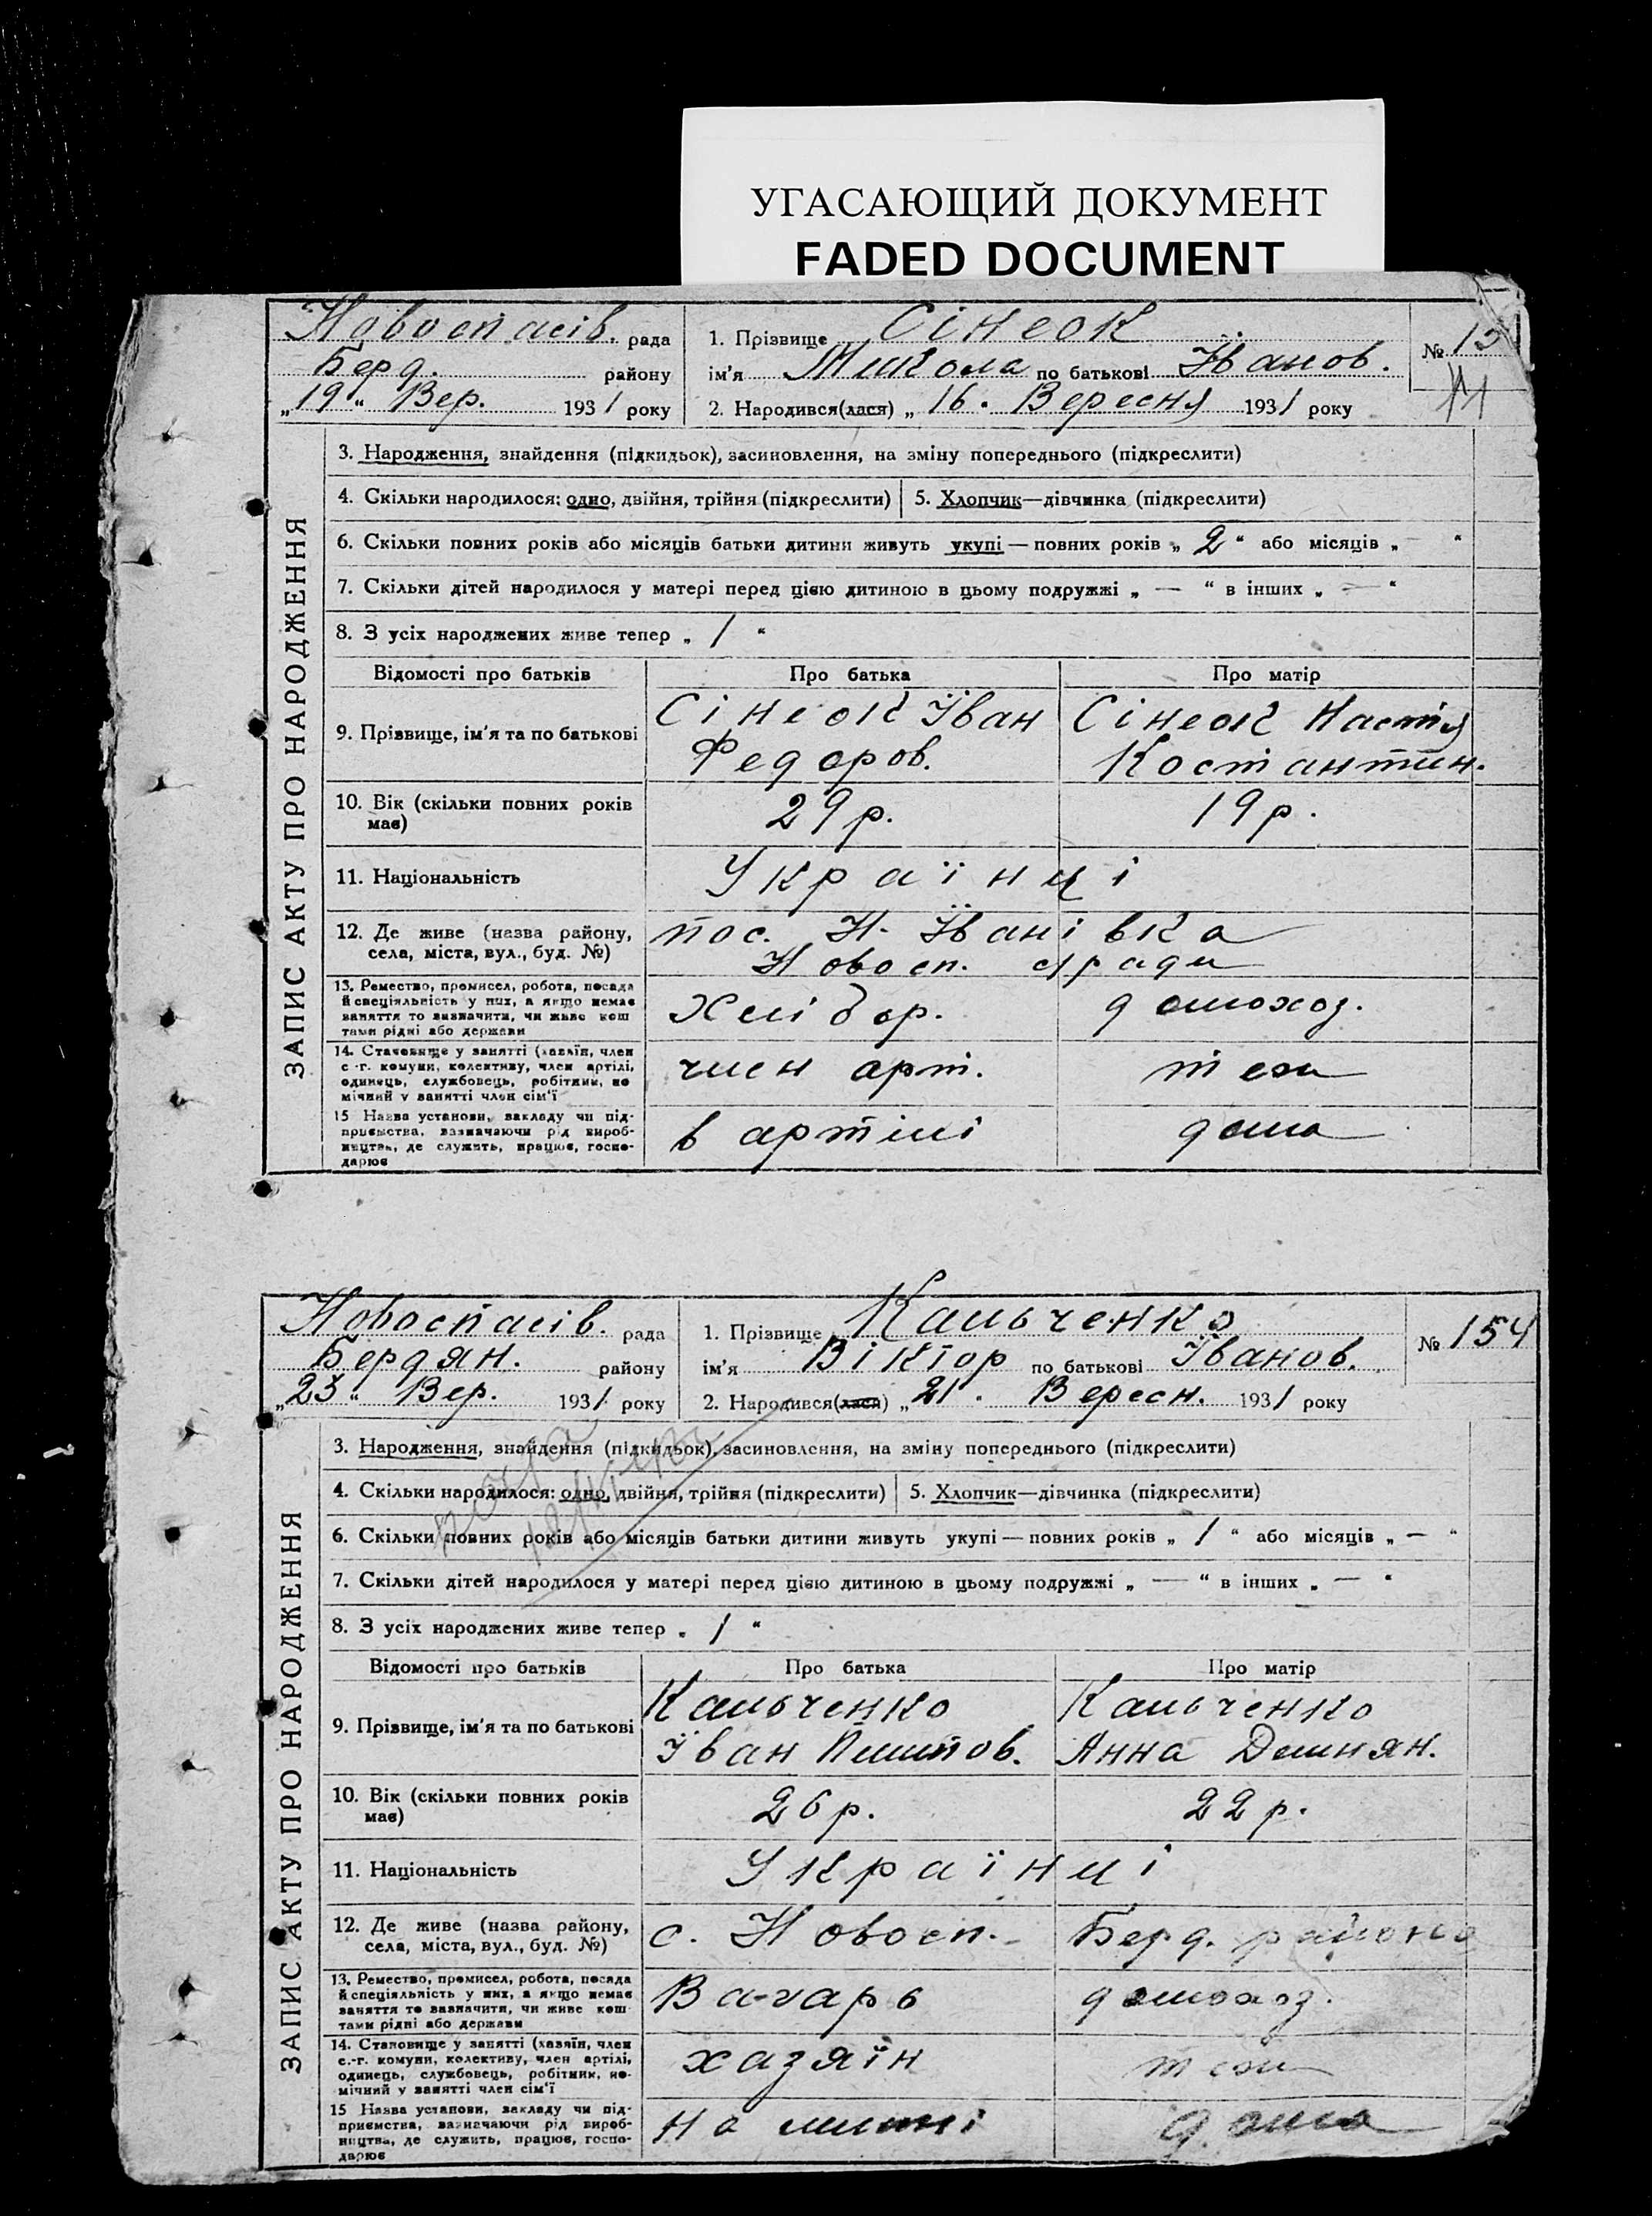 УГАСАЮЩИЙ ДОКУМЕНТ
FADED DOCUMENT
Новоспасів. рада
Берд. району
„19“ Вер. 1931 року
1. Прізвище Сінеок
ім'я Микола по батькові Іванов.
2. Народився(лася) „16. Вересня 1931 року
№
ЗАПИС АКТУ ПРО НАРОДЖЕННЯ
3. Народження, знайдення (підкидьок), засиновлення, на зміну попереднього (підкреслити)
4. Скільки народилося: одно, двійня, трійня (підкреслити) 5. Хлопчик—дівчинка (підкреслити)
6. Скільки повних років або місяців батьки дитини живуть укупі — повних років „ 2 “ або місяців „ — “
7. Скільки дітей народилося у матері перед цією дитиною в цьому подружжі „ — “ в інших „ — “
8. З усіх народжених живе тепер „ 1 “
Відомості про батьків Про батька Про матір
9. Прізвище, ім'я та по батькові
Сінеок Їван
Федоров.
Сінеок Настя
Костантин.
10. Вік (скільки повних років
має)
29 р. 19 р.
11. Національність Українці
12. Де живе (назва району,
села, міста, вул., буд. №)
пос. Н-Їванівка
Новосп. с/ради
13. Ремество, промисел, робота, посада
й спеціяльність у них, а якщо немає
заняття то визначити, чи живе кош
тами рідні або держави
Хлібор. домохоз.
14. Становище у занятті (хазяїн, член
с.-г. комуни, колективу, член артілі,
одинець, службовець, робітник, по
мічний у занятті член сім'ї
член арт. теж
15 Назва установи, закладу чи під-
приємства, зазначаючи рід вироб-
ництва, де служить, працює, госпо-
дарює
в артілі дома
Новоспасів. рада
Бердян. району
„23“ Вер. 1931 року
1. Прізвище Кальченко
ім'я Віктор по батькові Їванов.
2. Народився(лася) „21. Вересн. 1931 року
№ 154
ЗАПИС АКТУ ПРО НАРОДЖЕННЯ
3. Народження, знайдення (підкидьок), засиновлення, на зміну попереднього (підкреслити)
4. Скільки народилося: одно, двійня, трійня (підкреслити) 5. Хлопчик—дівчинка (підкреслити)
6. Скільки повних років або місяців батьки дитини живуть укупі — повних років „ 1 “ або місяців „ — “
7. Скільки дітей народилося у матері перед цією дитиною в цьому подружжі „ — “ в інших „ — “
8. З усіх народжених живе тепер „ 1 “
Відомості про батьків Про батька Про матір
9. Прізвище, ім'я та по батькові
Кальченко
Їван Пилипов.
Кальченко
Анна Демнян.
10. Вік (скільки повних років
має)
26 р. 22 р.
11. Національність Українці
12. Де живе (назва району,
села, міста, вул., буд. №)
с. Новосп. Берд. района
13. Ремество, промисел, робота, посада
й спеціяльність у них, а якщо немає
заняття то зазначити, чи живе кош-
тами рідні або держави
Вагарь домохоз.
14. Становище у занятті (хазяїн, член
с.-г. комуни, колективу, член артілі,
одинець, службовець, робітник, по-
мічний у занятті член сім'ї
хазяїн теж
15 Назва установи, закладу чи під-
приємства, зазначаючи рід вироб-
ництва, де служить, працює, госпо-
дарює
на дома